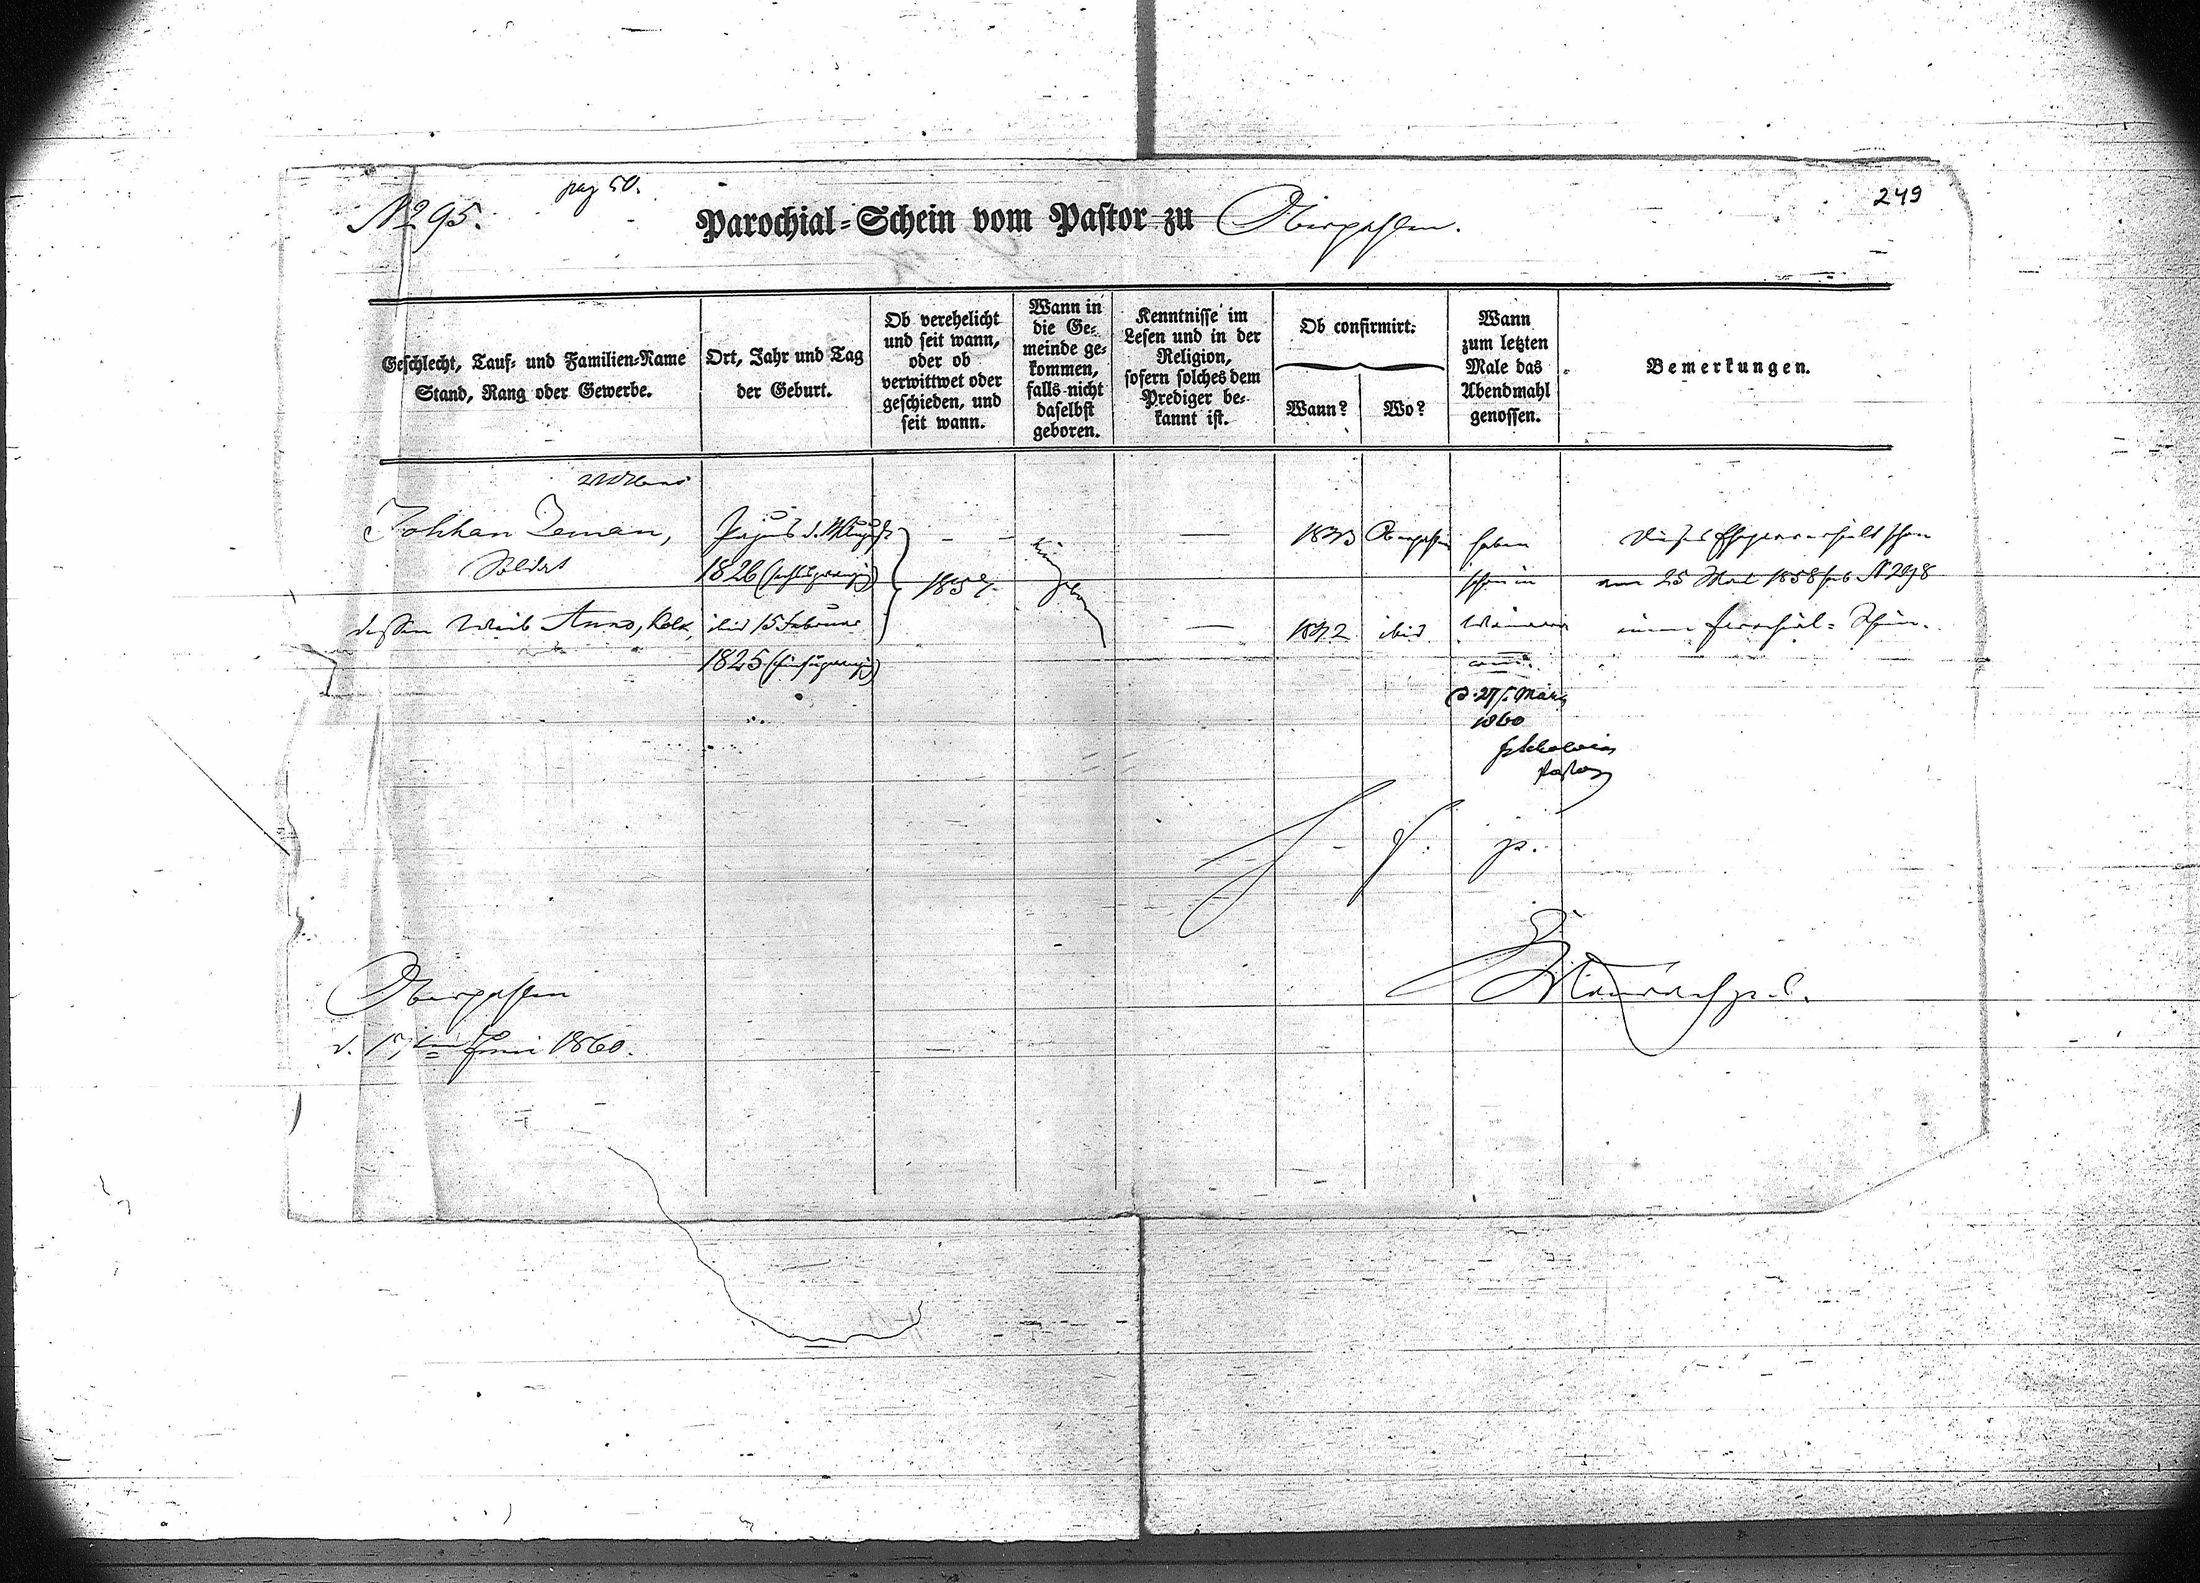 No 95.
pag 50.
249
Parochial-Schein vom Pastor zu Oberpahlen.
Geschlecht, Tauf- und Familien-Name
Stand, Rang oder Gewerbe.
Ort, Jahr und Tag
der Geburt.
Ob verehelicht
und seit wann,
oder ob
verwittwet oder
geschieden, und
seit wann.
Wann in
die Ge-
meinde ge-
kommen,
falls nicht
daselbst
geboren.
Kenntnisse im
Lesen und in der
Religion,
sofern solches dem
Prediger be-
kannt ist.
Ob confirmirt:
Wann?
Wo?
Wann
zum letzten
Male das
Abendmahl
genossen.
Bemerkungen.
Johhan Teman,
Soldat
Pajus d. August
1826 (sechszwanzig)
dessen Weib Anno,
ibid 15 Februar
1825 (fünfzwanzig)
1857.
hier
geb
—
1843
Oberpahlen
—
1842
ibid
haben
schon in
d. 27 März
1860
Pastor
Dieses Ehepaar erhielt schon
am 25 Mai 1858 sub N 298
einen Parochial-Schein.
Oberpahlen
d. 17ten Juni 1860.